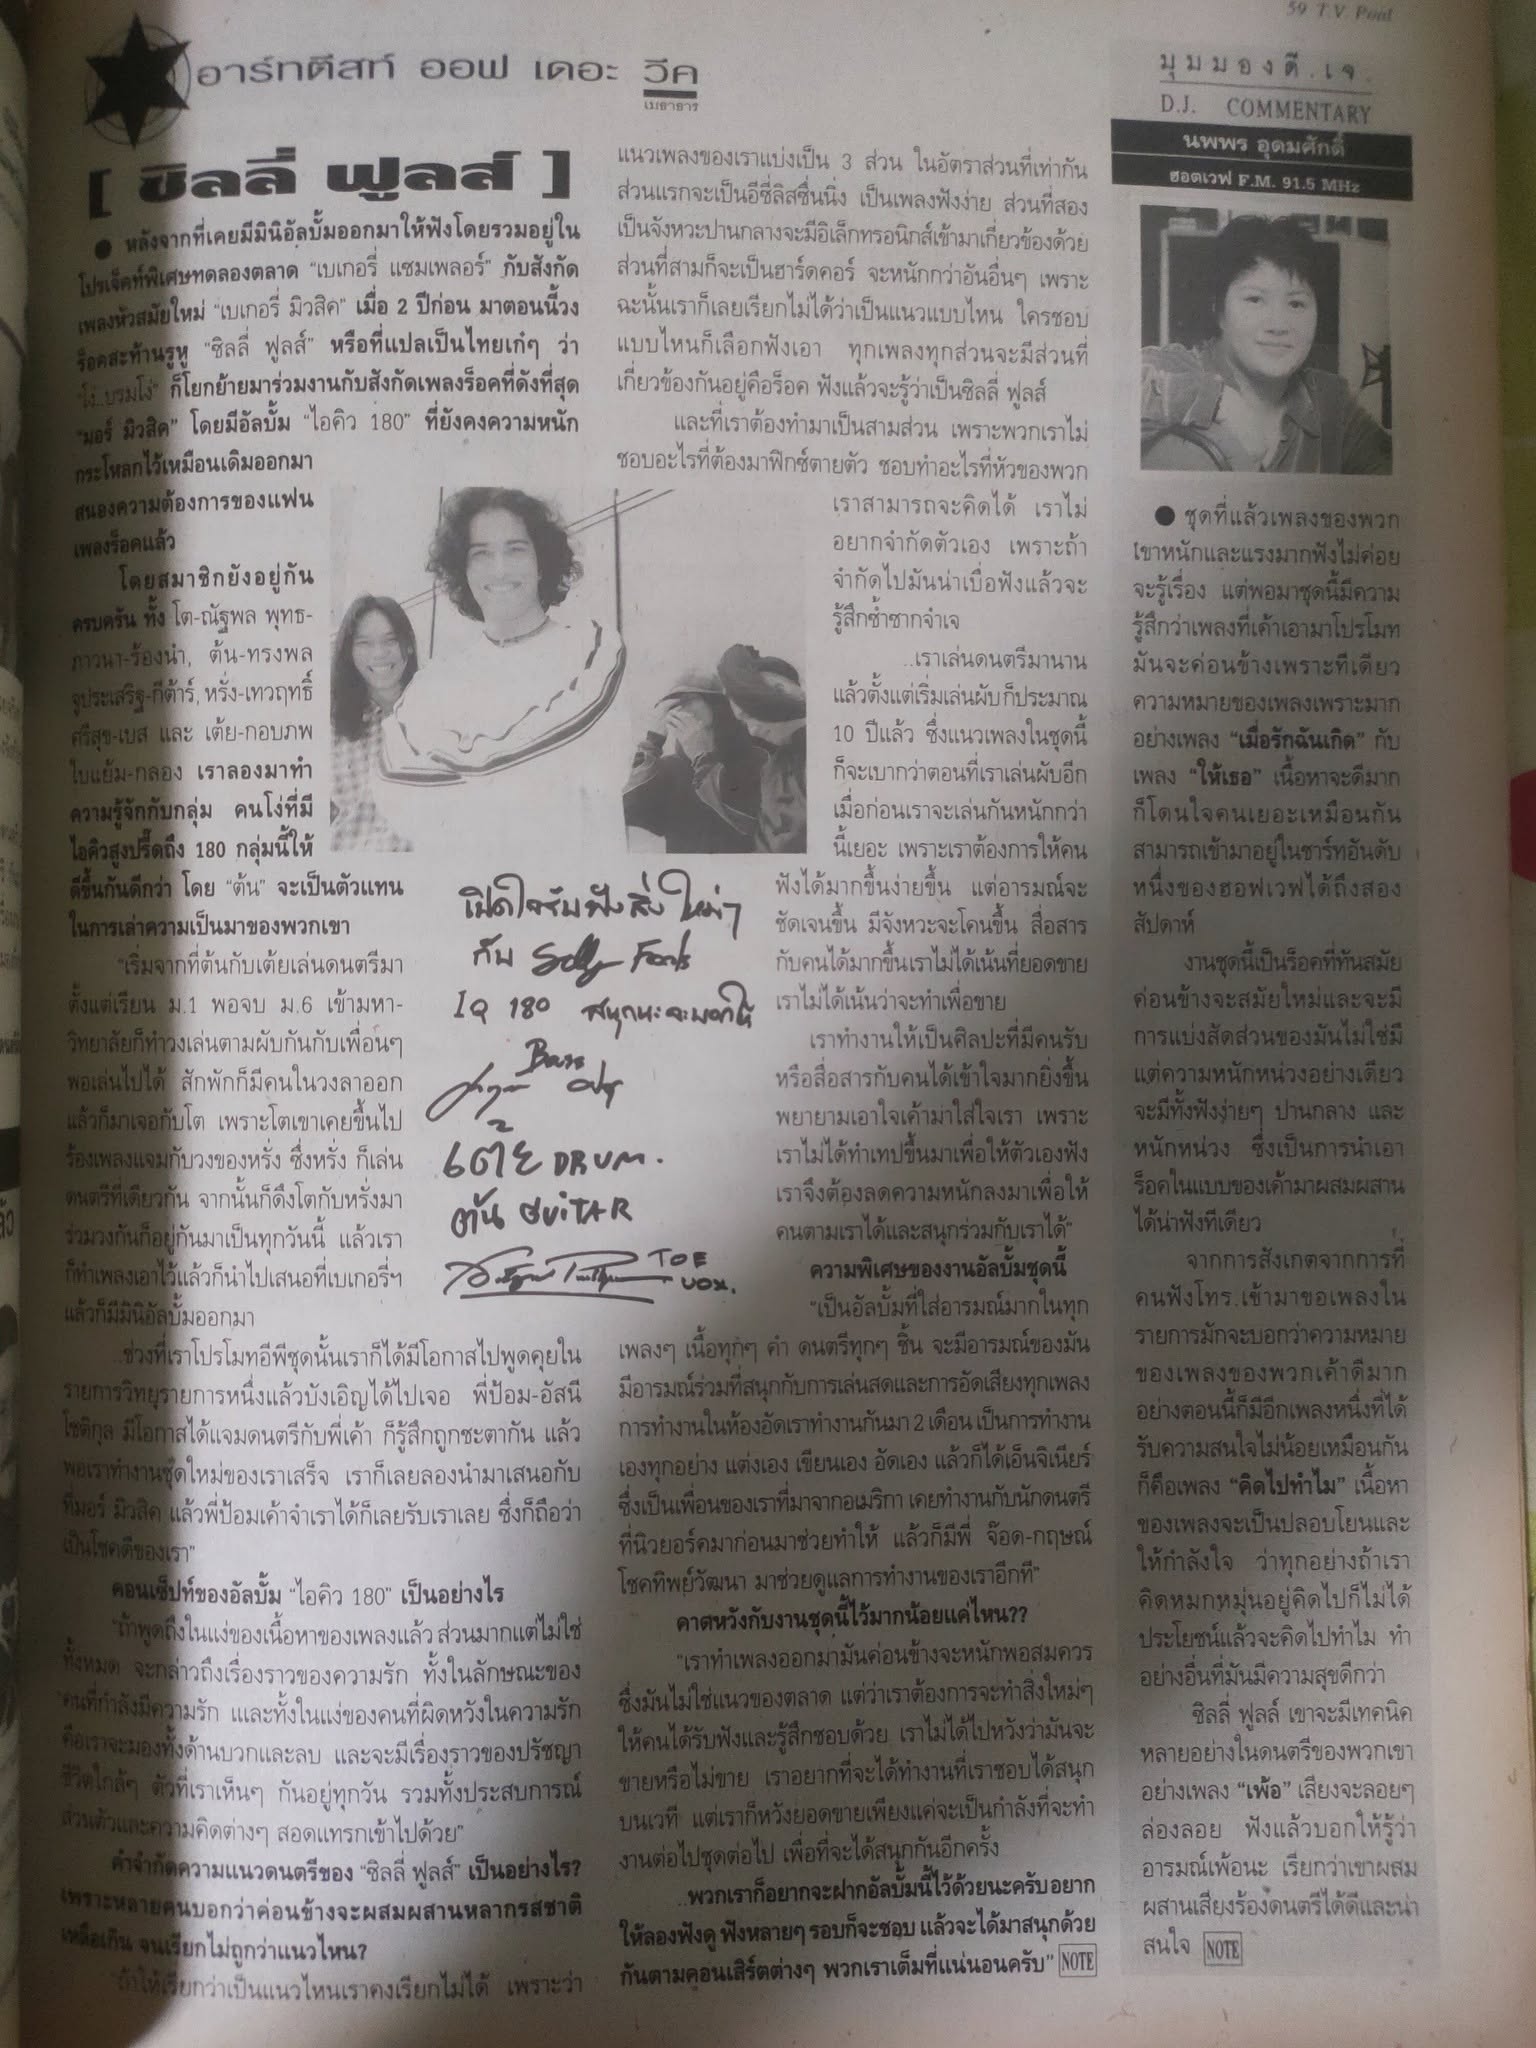 59 T.V. Pool
อาร์ทตีสท์ ออฟ เดอะ วีค
เมธาธาร
[ ซิลลี่ ฟูลส์ ]
● หลังจากที่เคยมีมินิอัลบั้มออกมาให้ฟังโดยรวมอยู่ใน
โปรเจ็คท์พิเศษทดลองตลาด “เบเกอรี่ แซมเพลอร์” กับสังกัด
เพลงหัวสมัยใหม่ “เบเกอรี่ มิวสิค” เมื่อ 2 ปีก่อน มาตอนนี้วง
ร็อคสะท้านรูหู “ซิลลี่ ฟูลส์” หรือที่แปลเป็นไทยเก๋ๆ ว่า
“โง่..บรมโง่” ก็โยกย้ายมาร่วมงานกับสังกัดเพลงร็อคที่ดังที่สุด
“มอร์ มิวสิค” โดยมีอัลบั้ม “ไอคิว 180” ที่ยังคงความหนัก
กระโหลกไว้เหมือนเดิมออกมา
สนองความต้องการของแฟน
เพลงร็อคแล้ว
โดยสมาชิกยังอยู่กัน
ครบครัน ทั้ง โต-ณัฐพล พุทธ-
ภาวนา-ร้องนำ, ต้น-ทรงพล
จูประเสริฐ-กีต้าร์, หรั่ง-เทวฤทธิ์
ศรีสุข-เบส และ เต้ย-กอบภพ
ใบแย้ม-กลอง เราลองมาทำ
ความรู้จักกับกลุ่ม คนโง่ที่มี
ไอคิวสูงปรี๊ดถึง 180 กลุ่มนี้ให้
ดีขึ้นกันดีกว่า โดย “ต้น” จะเป็นตัวแทน
ในการเล่าความเป็นมาของพวกเขา
“เริ่มจากที่ต้นกับเต้ยเล่นดนตรีมา
ตั้งแต่เรียน ม.1 พอจบ ม.6 เข้ามหา-
วิทยาลัยก็ทำวงเล่นตามผับกันกับเพื่อนๆ
พอเล่นไปได้ สักพักก็มีคนในวงลาออก
แล้วก็มาเจอกับโต เพราะโตเขาเคยขึ้นไป
ร้องเพลงแจมกับวงของหรั่ง ซึ่งหรั่ง ก็เล่น
ดนตรีที่เดียวกัน จากนั้นก็ดึงโตกับหรั่งมา
ร่วมวงกันก็อยู่กันมาเป็นทุกวันนี้ แล้วเรา
ก็ทำเพลงเอาไว้แล้วก็นำไปเสนอที่เบเกอรี่ฯ
แล้วก็มีมินิอัลบั้มออกมา
..ช่วงที่เราโปรโมทอีพีชุดนั้นเราก็ได้มีโอกาสไปพูดคุยใน
รายการวิทยุรายการหนึ่งแล้วบังเอิญได้ไปเจอ พี่ป้อม-อัสนี
โชติกุล มีโอกาสได้แจมดนตรีกับพี่เค้า ก็รู้สึกถูกชะตากัน แล้ว
พอเราทำงานชุดใหม่ของเราเสร็จ เราก็เลยลองนำมาเสนอกับ
ที่มอร์ มิวสิค แล้วพี่ป้อมเค้าจำเราได้ก็เลยรับเราเลย ซึ่งก็ถือว่า
เป็นโชคดีของเรา”
คอนเซ็ปท์ของอัลบั้ม “ไอคิว 180” เป็นอย่างไร
“ถ้าพูดถึงในแง่ของเนื้อหาของเพลงแล้ว ส่วนมากแต่ไม่ใช่
ทั้งหมด จะกล่าวถึงเรื่องราวของความรัก ทั้งในลักษณะของ
คนที่กำลังมีความรัก และทั้งในแง่ของคนที่ผิดหวังในความรัก
คือเราจะมองทั้งด้านบวกและลบ และจะมีเรื่องราวของปรัชญา
ชีวิตใกล้ๆ ตัวที่เราเห็นๆ กันอยู่ทุกวัน รวมทั้งประสบการณ์
ส่วนตัวและความคิดต่างๆ สอดแทรกเข้าไปด้วย”
คำจำกัดความแนวดนตรีของ “ซิลลี่ ฟูลส์” เป็นอย่างไร?
เพราะหลายคนบอกว่าค่อนข้างจะผสมผสานหลากรสชาติ
เหลือเกิน จนเรียกไม่ถูกว่าแนวไหน?
“ถ้าให้เรียกว่าเป็นแนวไหนเราคงเรียกไม่ได้ เพราะว่า
แนวเพลงของเราแบ่งเป็น 3 ส่วน ในอัตราส่วนที่เท่ากัน
ส่วนแรกจะเป็นอีซี่ลิสซึ่นนิ่ง เป็นเพลงฟังง่าย ส่วนที่สอง
เป็นจังหวะปานกลางจะมีอิเล็กทรอนิกส์เข้ามาเกี่ยวข้องด้วย
ส่วนที่สามก็จะเป็นฮาร์ดคอร์ จะหนักกว่าอันอื่นๆ เพราะ
ฉะนั้นเราก็เลยเรียกไม่ได้ว่าเป็นแนวแบบไหน ใครชอบ
แบบไหนก็เลือกฟังเอา ทุกเพลงทุกส่วนจะมีส่วนที่
เกี่ยวข้องกันอยู่คือร็อค ฟังแล้วจะรู้ว่าเป็นซิลลี่ ฟูลส์
และที่เราต้องทำมาเป็นสามส่วน เพราะพวกเราไม่
ชอบอะไรที่ต้องมาฟิกซ์ตายตัว ชอบทำอะไรที่หัวของพวก
เราสามารถจะคิดได้ เราไม่
อยากจำกัดตัวเอง เพราะถ้า
จำกัดไปมันน่าเบื่อฟังแล้วจะ
รู้สึกซ้ำซากจำเจ
..เราเล่นดนตรีมานาน
แล้วตั้งแต่เริ่มเล่นผับก็ประมาณ
10 ปีแล้ว ซึ่งแนวเพลงในชุดนี้
ก็จะเบากว่าตอนที่เราเล่นผับอีก
เมื่อก่อนเราจะเล่นกันหนักกว่า
นี้เยอะ เพราะเราต้องการให้คน
ฟังได้มากขึ้นง่ายขึ้น แต่อารมณ์จะ
ชัดเจนขึ้น มีจังหวะจะโคนขึ้น สื่อสาร
กับคนได้มากขึ้นเราไม่ได้เน้นที่ยอดขาย
เราไม่ได้เน้นว่าจะทำเพื่อขาย
เราทำงานให้เป็นศิลปะที่มีคนรับ
หรือสื่อสารกับคนได้เข้าใจมากยิ่งขึ้น
พยายามเอาใจเค้ามาใส่ใจเรา เพราะ
เราไม่ได้ทำเทปขึ้นมาเพื่อให้ตัวเองฟัง
เราจึงต้องลดความหนักลงมาเพื่อให้
คนตามเราได้และสนุกร่วมกับเราได้”
ความพิเศษของงานอัลบั้มชุดนี้
“เป็นอัลบั้มที่ใส่อารมณ์มากในทุก
เพลงๆ เนื้อทุกๆ คำ ดนตรีทุกๆ ชิ้น จะมีอารมณ์ของมัน
มีอารมณ์ร่วมที่สนุกกับการเล่นสดและการอัดเสียงทุกเพลง
การทำงานในห้องอัดเราทำงานกันมา 2 เดือน เป็นการทำงาน
เองทุกอย่าง แต่งเอง เขียนเอง อัดเอง แล้วก็ได้เอ็นจิเนียร์
ซึ่งเป็นเพื่อนของเราที่มาจากอเมริกา เคยทำงานกับนักดนตรี
ที่นิวยอร์คมาก่อนมาช่วยทำให้ แล้วก็มีพี่ จ๊อด-กฤษณ์
โชคทิพย์วัฒนา มาช่วยดูแลการทำงานของเราอีกที”
คาดหวังกับงานชุดนี้ไว้มากน้อยแค่ไหน??
“เราทำเพลงออกมามันค่อนข้างจะหนักพอสมควร
ซึ่งมันไม่ใช่แนวของตลาด แต่ว่าเราต้องการจะทำสิ่งใหม่ๆ
ให้คนได้รับฟังและรู้สึกชอบด้วย เราไม่ได้ไปหวังว่ามันจะ
ขายหรือไม่ขาย เราอยากที่จะได้ทำงานที่เราชอบได้สนุก
บนเวที แต่เราก็หวังยอดขายเพียงแค่จะเป็นกำลังที่จะทำ
งานต่อไปชุดต่อไป เพื่อที่จะได้สนุกกันอีกครั้ง
..พวกเราก็อยากจะฝากอัลบั้มนี้ไว้ด้วยนะครับ อยาก
ให้ลองฟังดู ฟังหลายๆ รอบก็จะชอบ แล้วจะได้มาสนุกด้วย
กันตามคอนเสิร์ตต่างๆ พวกเราเต็มที่แน่นอนครับ” NOTE
เปิดใจรับฟังสิ่งใหม่ๆ
กับ Silly Fools
IQ 180 สนุกนะจะบอกให้
Bass
เต้ย DRUM.
ต้น GUITAR
TOE
VOX.
มุมมองดี.เจ.
D.J. COMMENTARY
นพพร อุดมศักดิ์
ฮอตเวฟ F.M. 91.5 MHz
● ชุดที่แล้วเพลงของพวก
เขาหนักและแรงมากฟังไม่ค่อย
จะรู้เรื่อง แต่พอมาชุดนี้มีความ
รู้สึกว่าเพลงที่เค้าเอามาโปรโมท
มันจะค่อนข้างเพราะทีเดียว
ความหมายของเพลงเพราะมาก
อย่างเพลง “เมื่อรักฉันเกิด” กับ
เพลง “ให้เธอ” เนื้อหาจะดีมาก
ก็โดนใจคนเยอะเหมือนกัน
สามารถเข้ามาอยู่ในชาร์ทอันดับ
หนึ่งของฮอฟเวฟได้ถึงสอง
สัปดาห์
งานชุดนี้เป็นร็อคที่ทันสมัย
ค่อนข้างจะสมัยใหม่และจะมี
การแบ่งสัดส่วนของมันไม่ใช่มี
แต่ความหนักหน่วงอย่างเดียว
จะมีทั้งฟังง่ายๆ ปานกลาง และ
หนักหน่วง ซึ่งเป็นการนำเอา
ร็อคในแบบของเค้ามาผสมผสาน
ได้น่าฟังทีเดียว
จากการสังเกตจากการที่
คนฟังโทร.เข้ามาขอเพลงใน
รายการมักจะบอกว่าความหมาย
ของเพลงของพวกเค้าดีมาก
อย่างตอนนี้ก็มีอีกเพลงหนึ่งที่ได้
รับความสนใจไม่น้อยเหมือนกัน
ก็คือเพลง “คิดไปทำไม” เนื้อหา
ของเพลงจะเป็นปลอบโยนและ
ให้กำลังใจ ว่าทุกอย่างถ้าเรา
คิดหมกหมุ่นอยู่คิดไปก็ไม่ได้
ประโยชน์แล้วจะคิดไปทำไม ทำ
อย่างอื่นที่มันมีความสุขดีกว่า
ซิลลี่ ฟูลล์ เขาจะมีเทคนิค
หลายอย่างในดนตรีของพวกเขา
อย่างเพลง “เพ้อ” เสียงจะลอยๆ
ล่องลอย ฟังแล้วบอกให้รู้ว่า
อารมณ์เพ้อนะ เรียกว่าเขาผสม
ผสานเสียงร้องดนตรีได้ดีและน่า
สนใจ NOTE